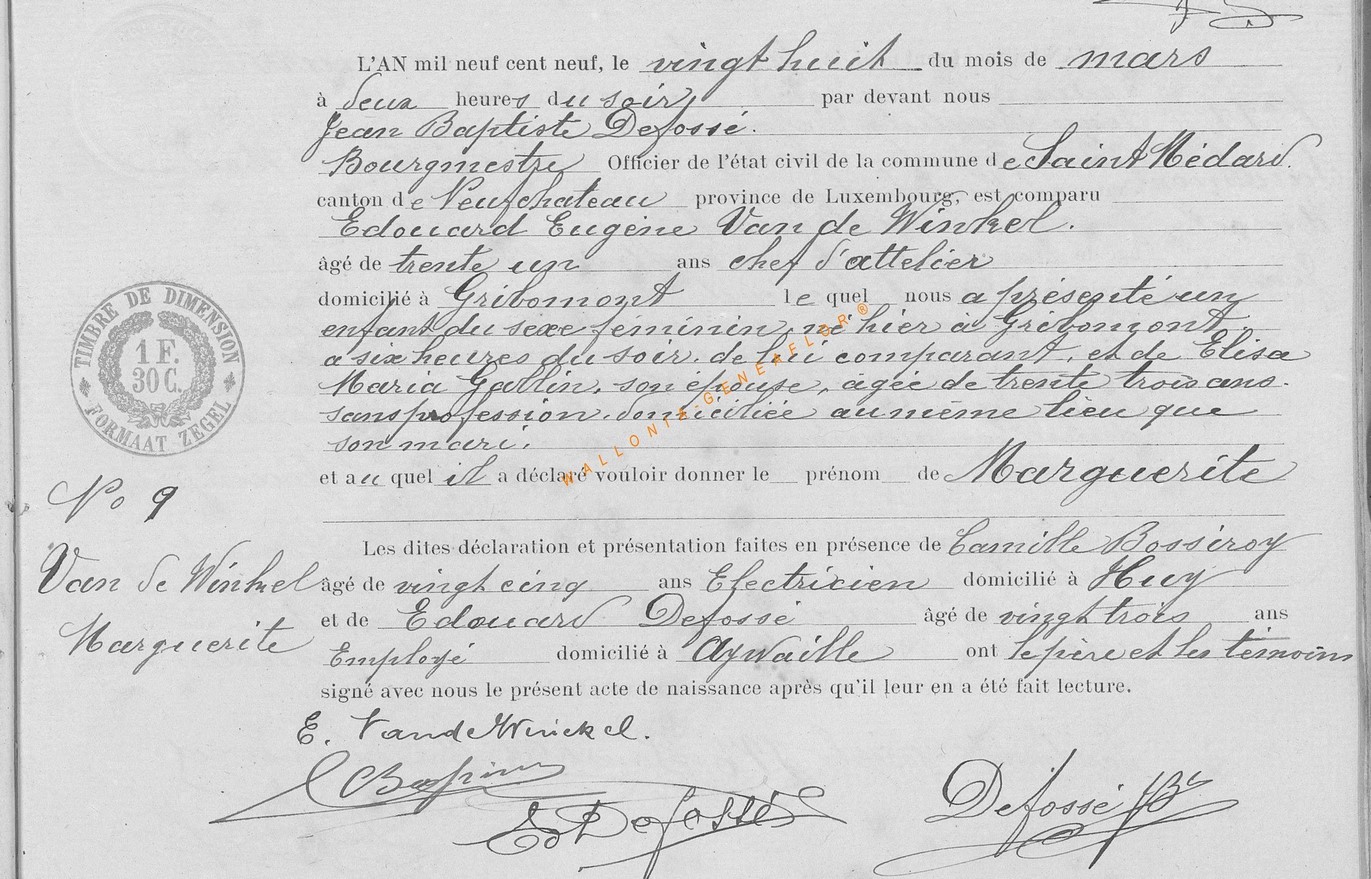 L'AN mil neuf cent neuf, le vingt huit du mois de mars
à deux heures du soir par devant nous
Jean Baptiste Defossé.
Bourgmestre Officier de l'état civil de la commune de Saint Médard.
canton de Neufchateau province de Luxembourg, est comparu
Edouard Eugène Van de Winkel.
âgé de trente un ans chef d'attelier
domicilié à Gribomont le quel nous a présenté un
enfant du sexe féminin, né hier à Gribomont
a six heures du soir. de lui comparant, et de Elisa
Maria Gallin, son épouse, âgée de trente trois ans.
sans profession domiciliée au même lieu que
son mari.
et au quel il a déclaré vouloir donner le prénom de Marguerite
Les dites déclaration et présentation faites en présence de Camille Bosseroy
âgé de vingt cinq ans Electricien domicilié à Huy
et de Edouard Defossé âgé de vingt trois ans
Employé domicilié à Aywaille ont le père et les témoins
signé avec nous le présent acte de naissance après qu'il leur en a été fait lecture.
E. VandeWinckel.
Ed Defossé
Defossé JBte
TIMBRE DE DIMENSION
1 F.
30 C.
FORMAAT ZEGEL
No 9
Van de Winkel
Marguerite
WALLONIE-GENEAFLOR®